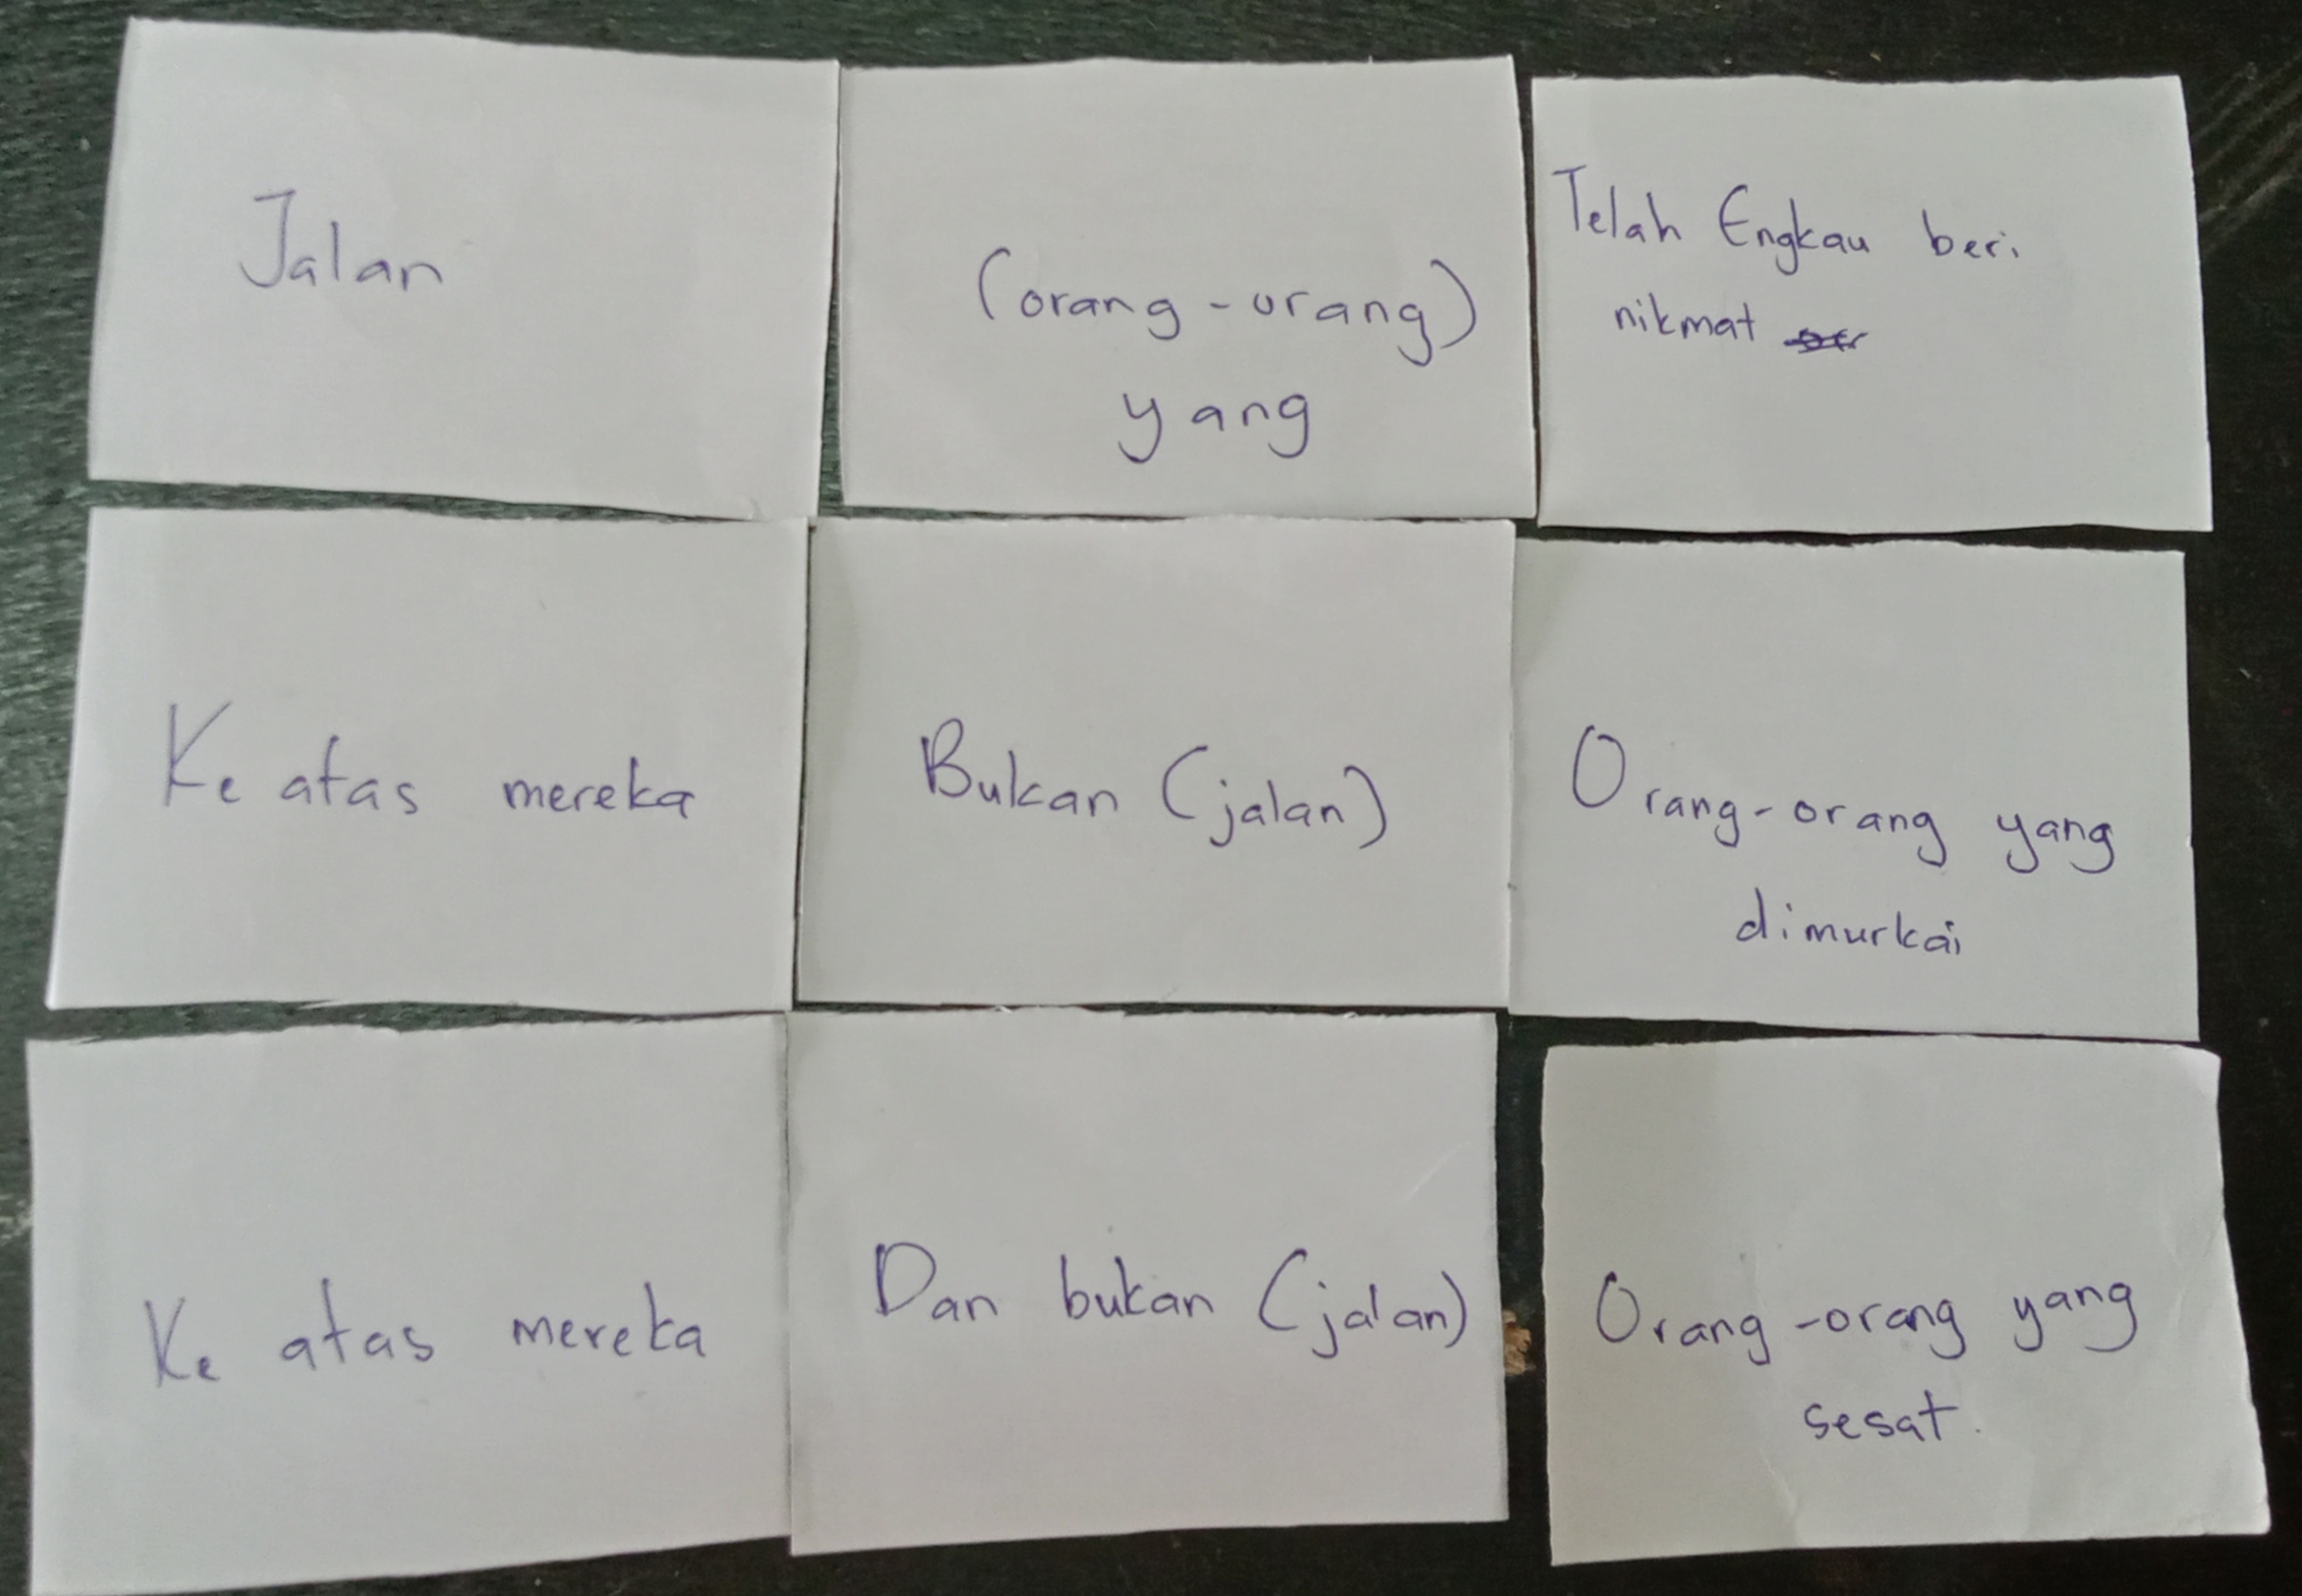 Jalan
(orang-orang)
yang
Telah Engkau beri
nikmat
Ke atas mereka
Bukan (jalan)
Orang-orang yang
dimurkai
Ke atas mereka
Dan bukan (jalan)
Orang-orang yang
sesat.